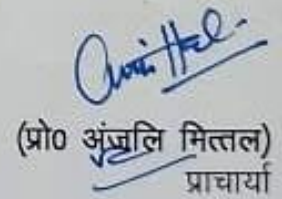 (प्रो० अंजलि मित्तल)
प्राचार्या